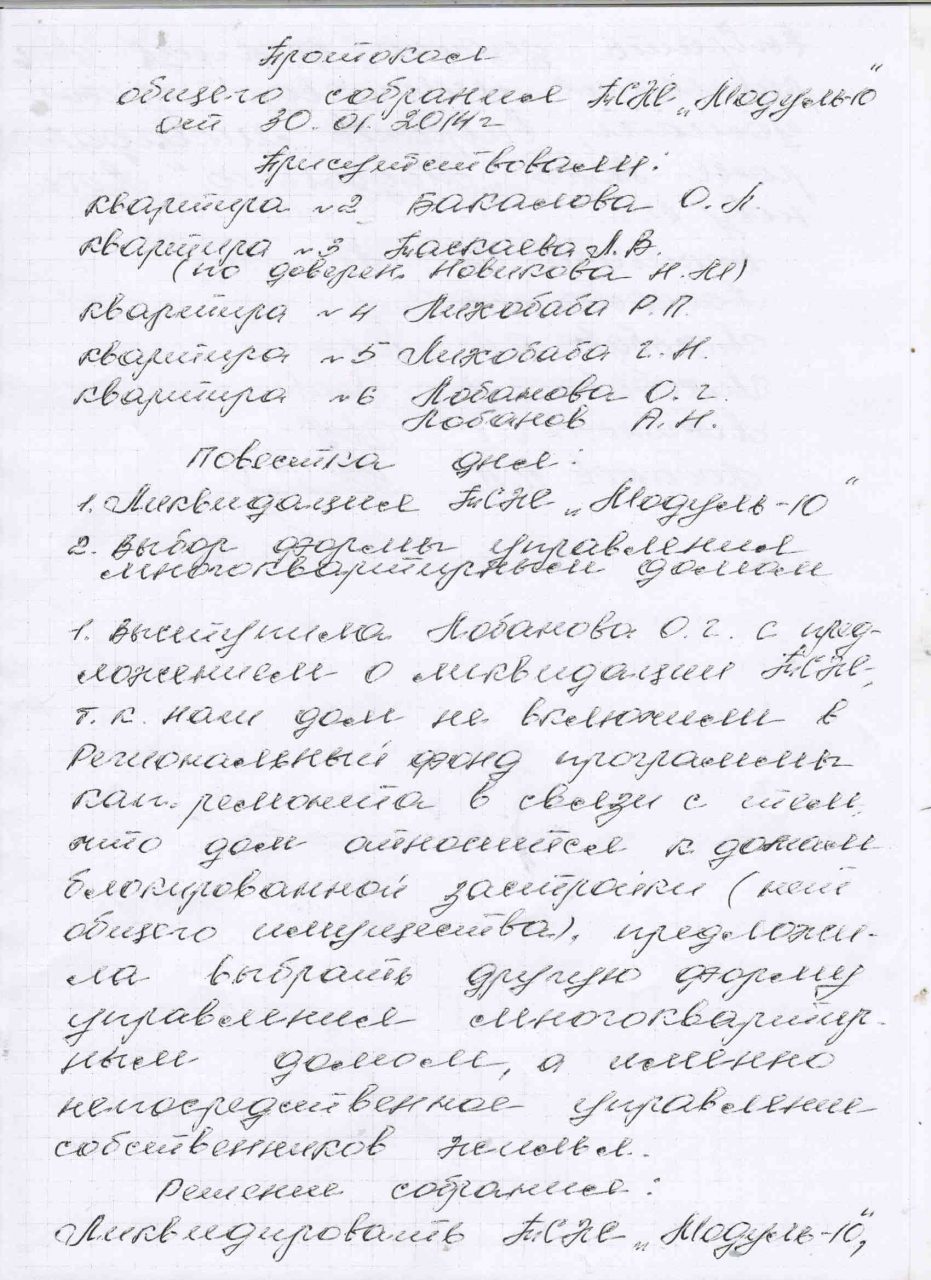 Протокол
общего собрания ТСЖ „Модуль-Ю"
от 30.01.2014г
Присутствовали:
квартира №2 Бакалова О.Л.
квартира №3 Таскаева Л.В.
(по доверен. Новикова Н.Н)
квартира №4 Лихобаба Р.П.
квартира №5 Лихобаба Г.Н.
квартира №6 Лобанова О.Г.
Лобанов А.Н.
Повестка дня:
1. Ликвидация ТСЖ „Модуль-Ю"
2. Выбор формы управления
многоквартирным домом
1. Выступила Лобанова О.Г. с пред-
ложением о ликвидации ТСЖ,
т.к. наш дом не включили в
Региональный фонд программы
кап. ремонта в связи с тем,
что дом относится к домам
блокированной застройки (нет
общего имущества), предложи-
ла выбрать другую форму
управления многоквартир-
ным домом, а именно
непосредственное управление
собственников жилья.
Решение собрания:
Ликвидировать ТСЖ „Модуль-Ю",